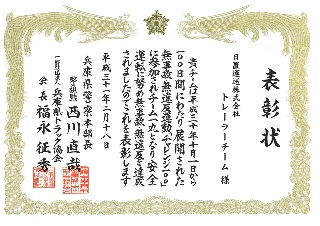 表彰状
日置運送株式会社
トレーラーチーム 様
貴チームは平成三十年十月一日から
一〇〇日間にわたり展開された
無事故・無違反運動「チャレンジ一〇〇」
に参加されチーム一丸となり安全
運転に努め無事故・無違反を達成
されましたのでこれを表彰します
平成三十一年二月十八日
兵庫県警察本部長
警視監 西川直哉
一般社団法人 兵庫県トラック協会
会長 福永征秀